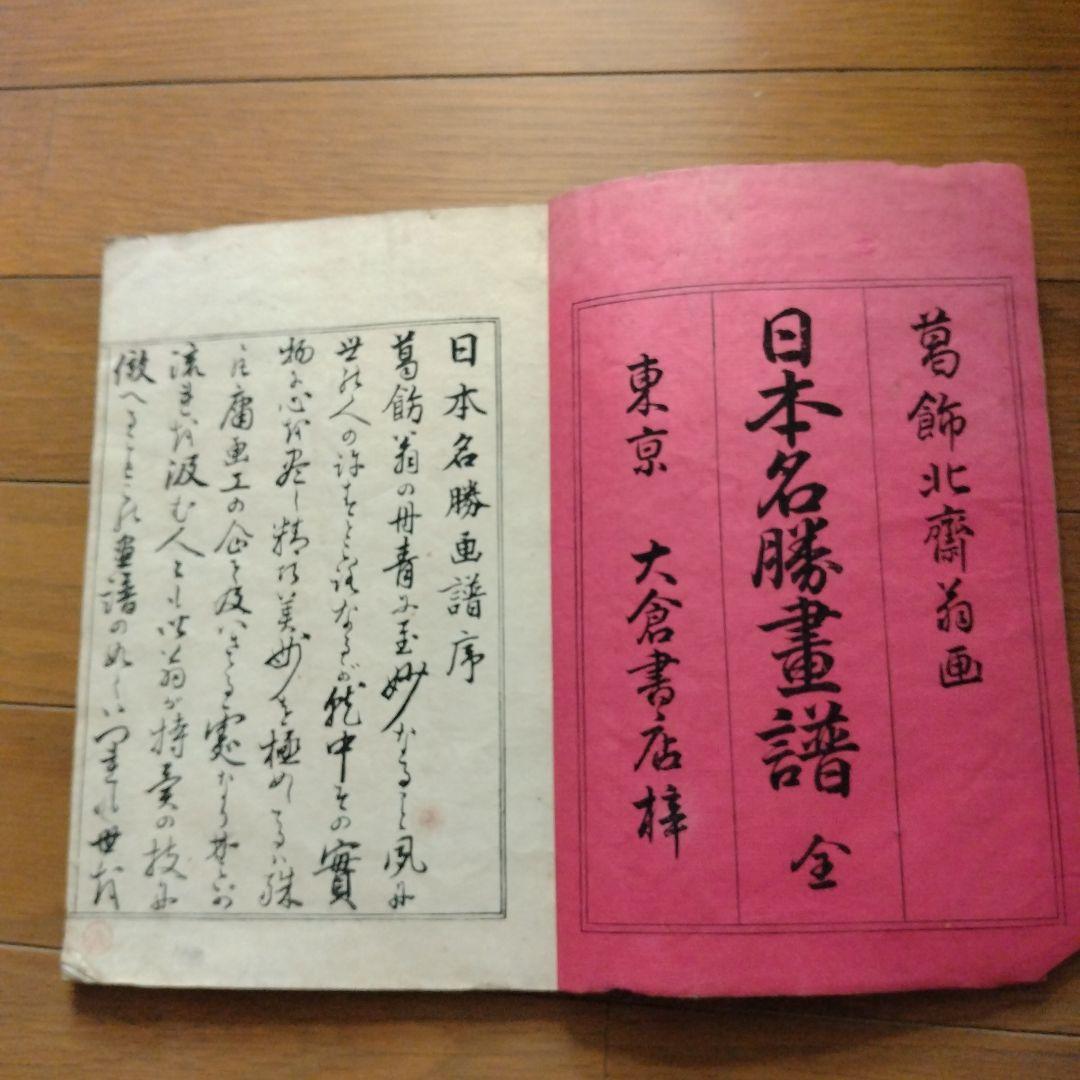 葛飾北齋翁画
日本名勝畫譜 全
東京 大倉書店梓
日本名勝画譜序
葛飾翁の丹青に至妙なること夙に
世の人の許すところなるが就中その實
物に心を尽し精巧美妙を極めしるハ殊
に庸画工の企て及ハさる處なり
流れを汲む人にも此翁が持秀の技に
倣へること画譜の如くハ世を